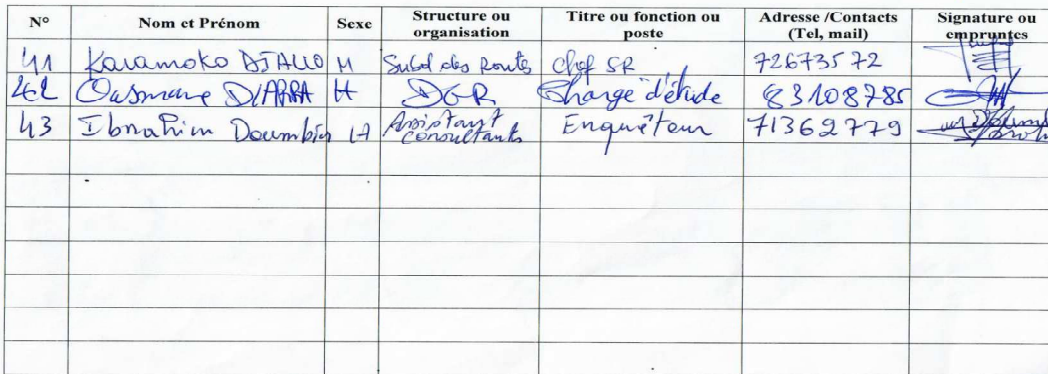 N° Nom et Prénom Sexe Structure ou organisation Titre ou fonction ou poste Adresse /Contacts (Tel, mail) Signature ou empruntes
41 Karamoko DIALLO M Subd des Routes Chef SR 72673572
42 Ousmane DIARRA H DGR Chargé d'étude 83108785
43 Ibrahim Doumbia H Assistant consultants Enquêteur 71362779